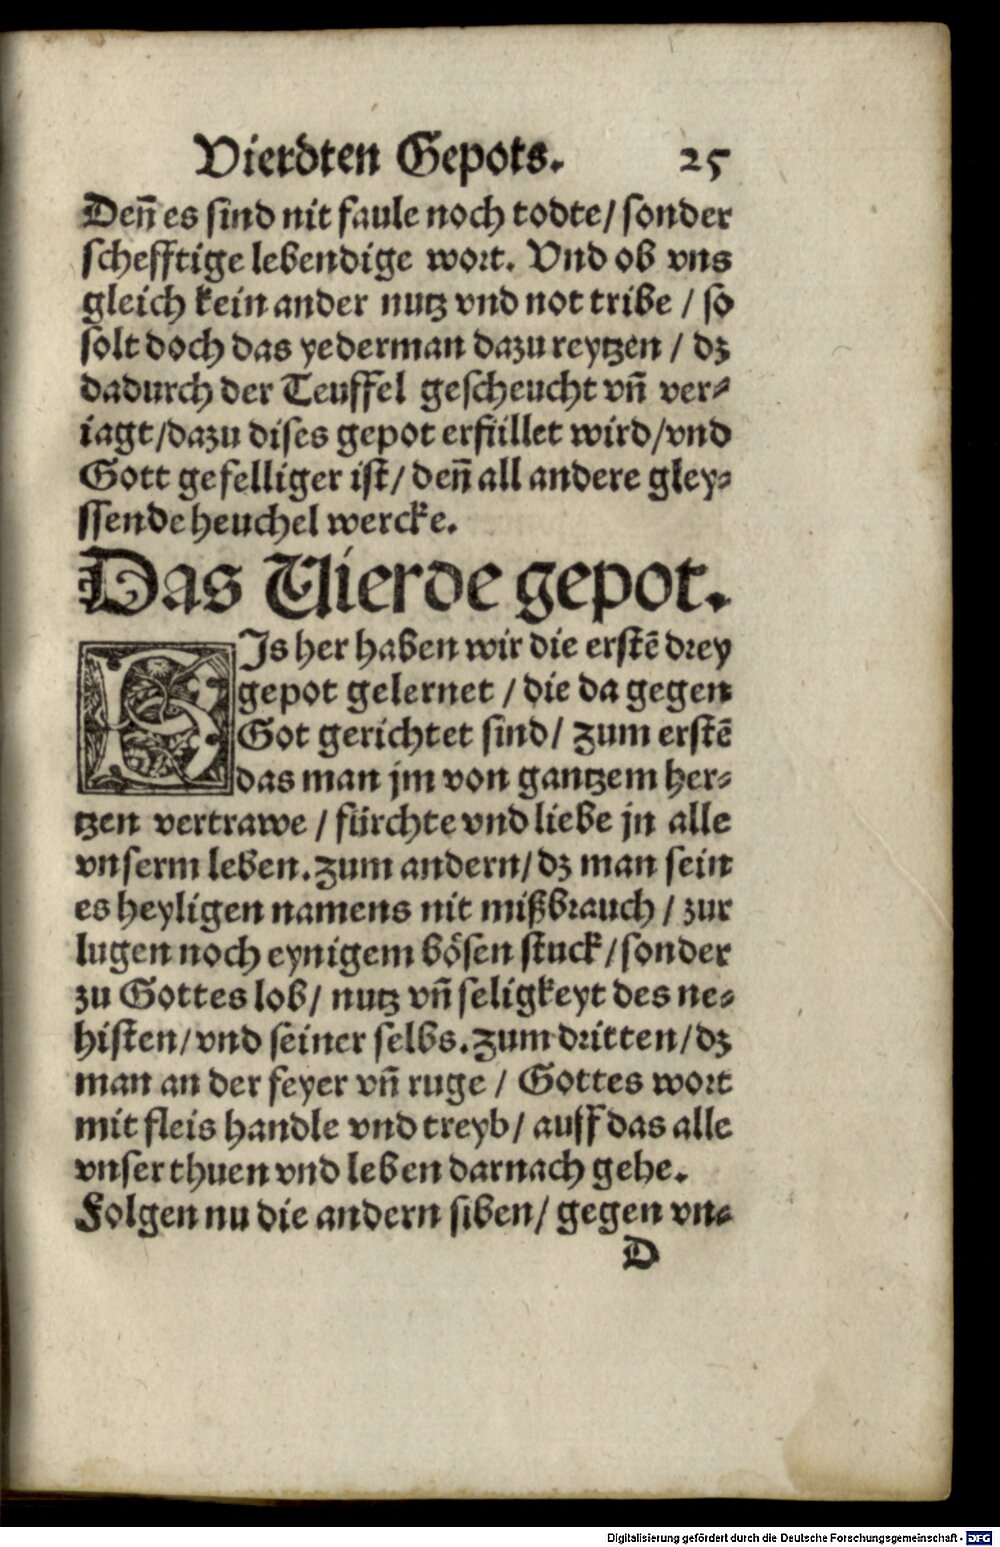 Vierdten Gepots. 25
Deñ es sind nit faule noch todte/ sonder
schefftige lebendige wort. Vnd ob vns
gleich kein ander nutz vnd not tribe / so
solt doch das yederman dazu reytzen / dz
dadurch der Teuffel gescheucht vñ ver⸗
iagt/dazu dises gepot erfüllet wird/vnd
Gott gefelliger ist/ deñ all andere gley⸗
ssende heuchel wercke.
Das Vierde gepot.
BJs her haben wir die erstẽ drey
gepot gelernet / die da gegen
Got gerichtet sind/ zum erstẽ
das man jm von gantzem her⸗
tzen vertrawe / fürchte vnd liebe jn alle
vnserm leben. zum andern/ dz man sein
es heyligen namens nit mißbrauch / zur
lugen noch eynigem bösen stuck/ sonder
zu Gottes lob/ nutz vñ seligkeyt des ne⸗
histen/ vnd seiner selbs. zum dritten/ dz
man an der feyer vñ ruge / Gottes wort
mit fleis handle vnd treyb/ auff das alle
vnser thuen vnd leben darnach gehe.
Folgen nu die andern siben/ gegen vn⸗
D
Digitalisierung gefördert durch die Deutsche Forschungsgemeinschaft - DFG